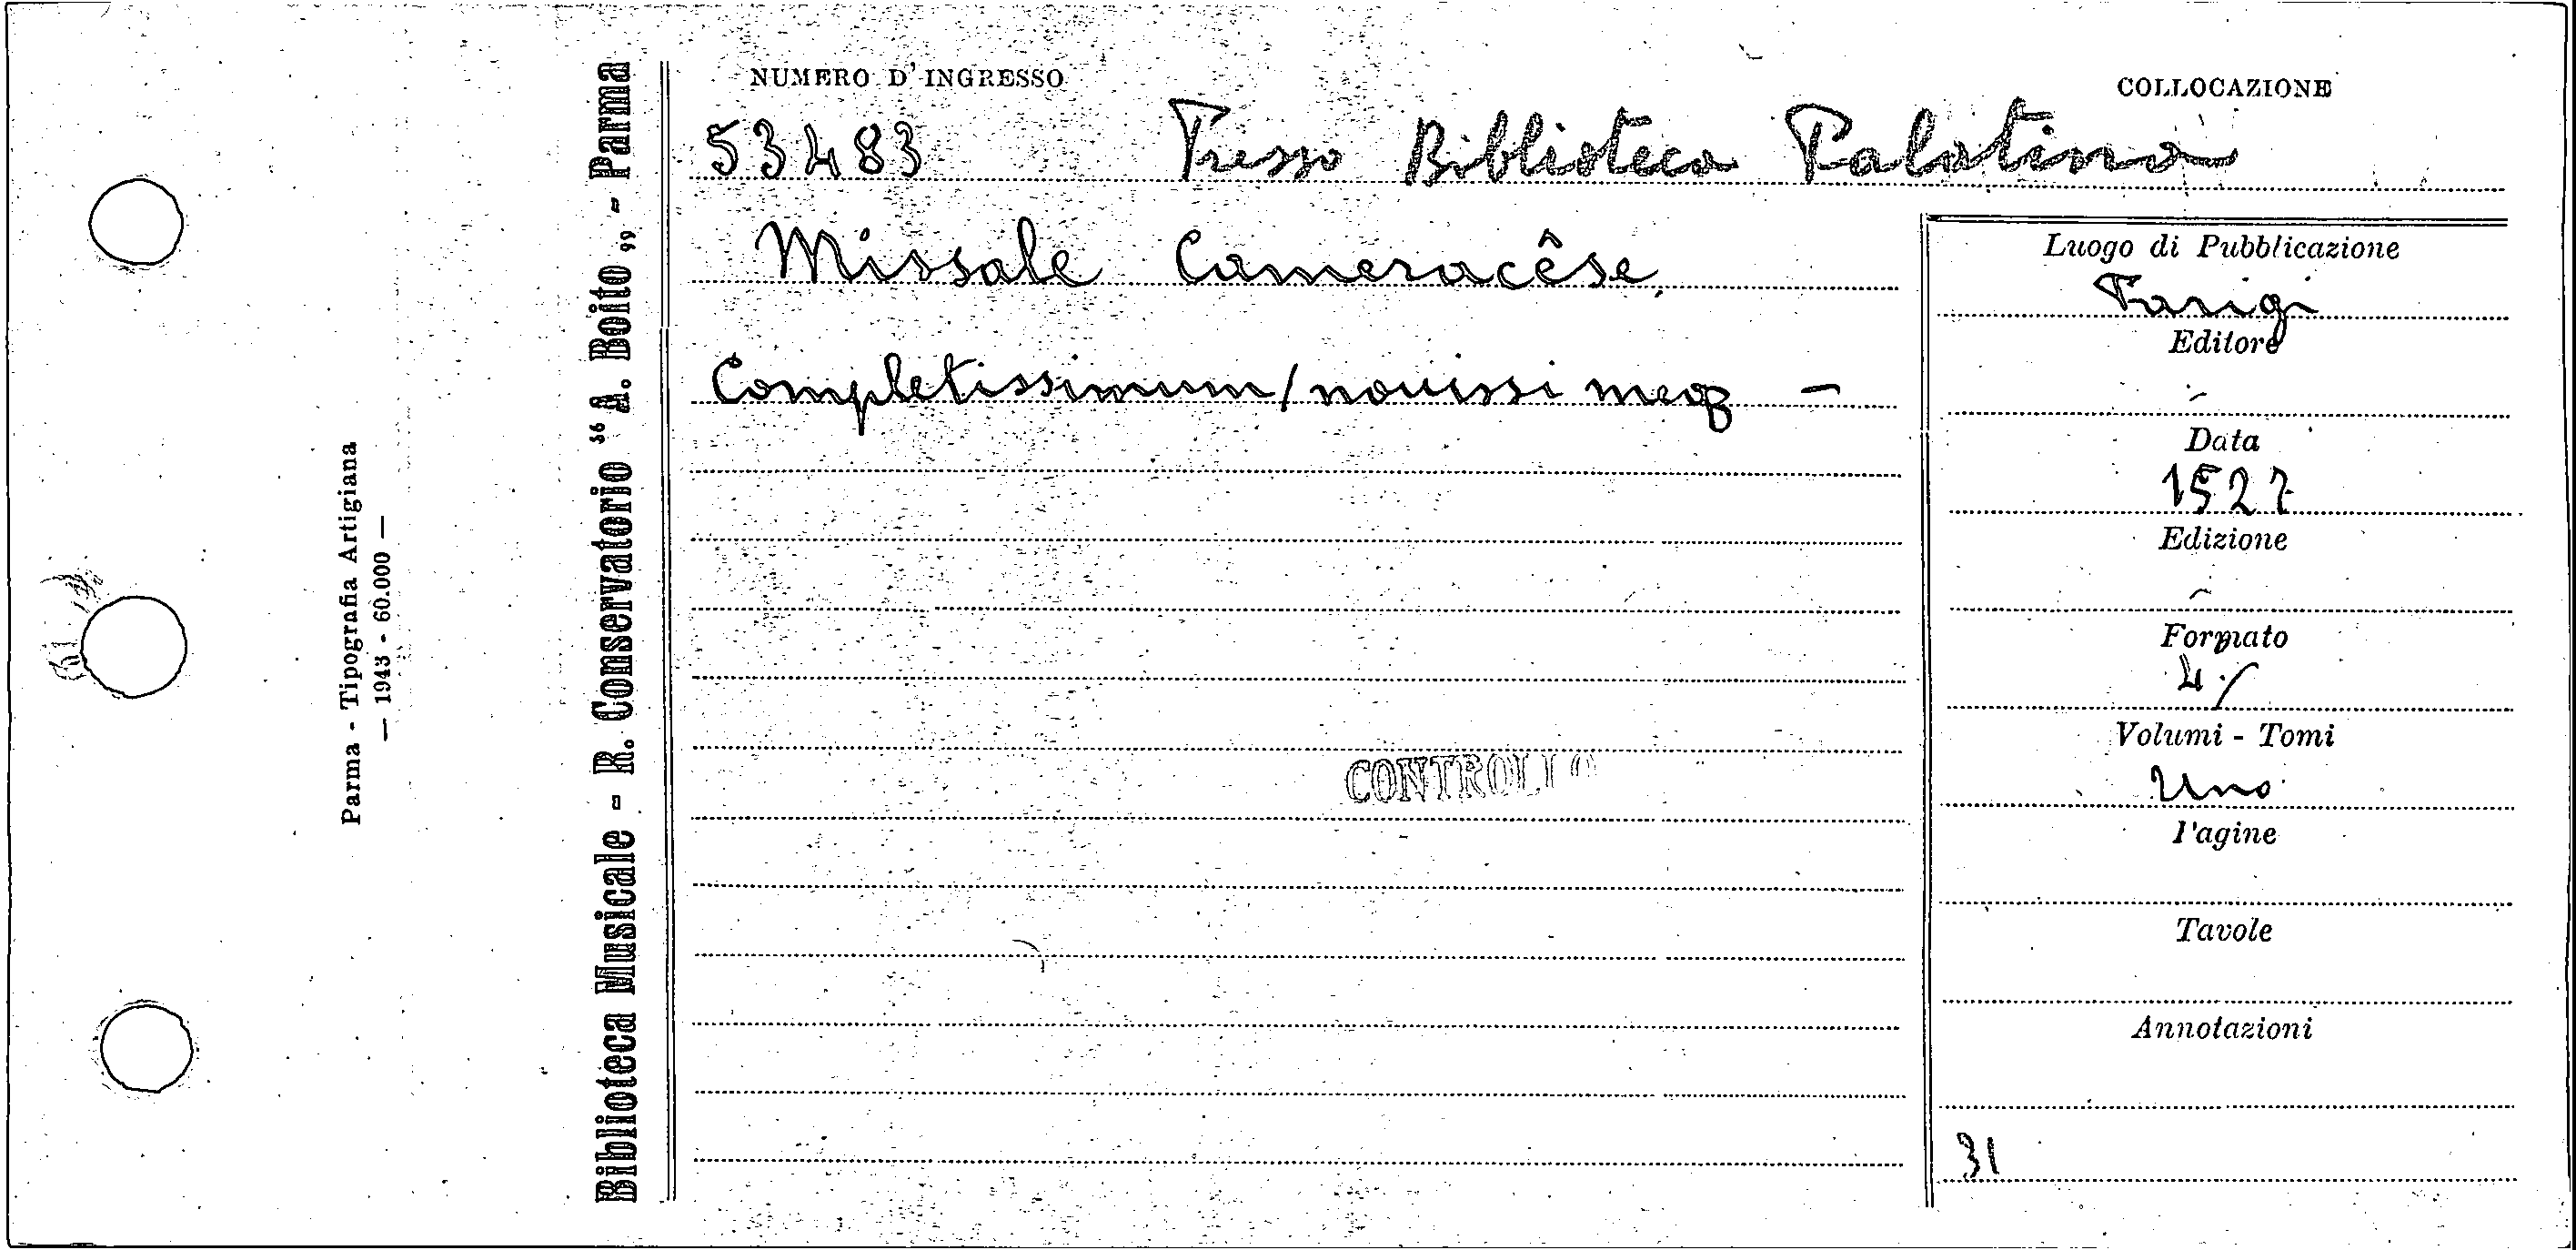 Parma - Tipografia Artigiana
— 1943 - 60.000 —
Biblioteca Musicale - R. Conservatorio “A. Boito„ - Parma
NUMERO D'INGRESSO
COLLOCAZIONE
53483 Presso Biblioteca Palatina
Missale Cameracêse,
Completissimum/nouissi meqz -
CONTROLLO
Luogo di Pubblicazione
Parigi
Editore
-
Data
1527
Edizione
-
Formato
4./
Volumi - Tomi
Uno
Pagine
Tavole
Annotazioni
31